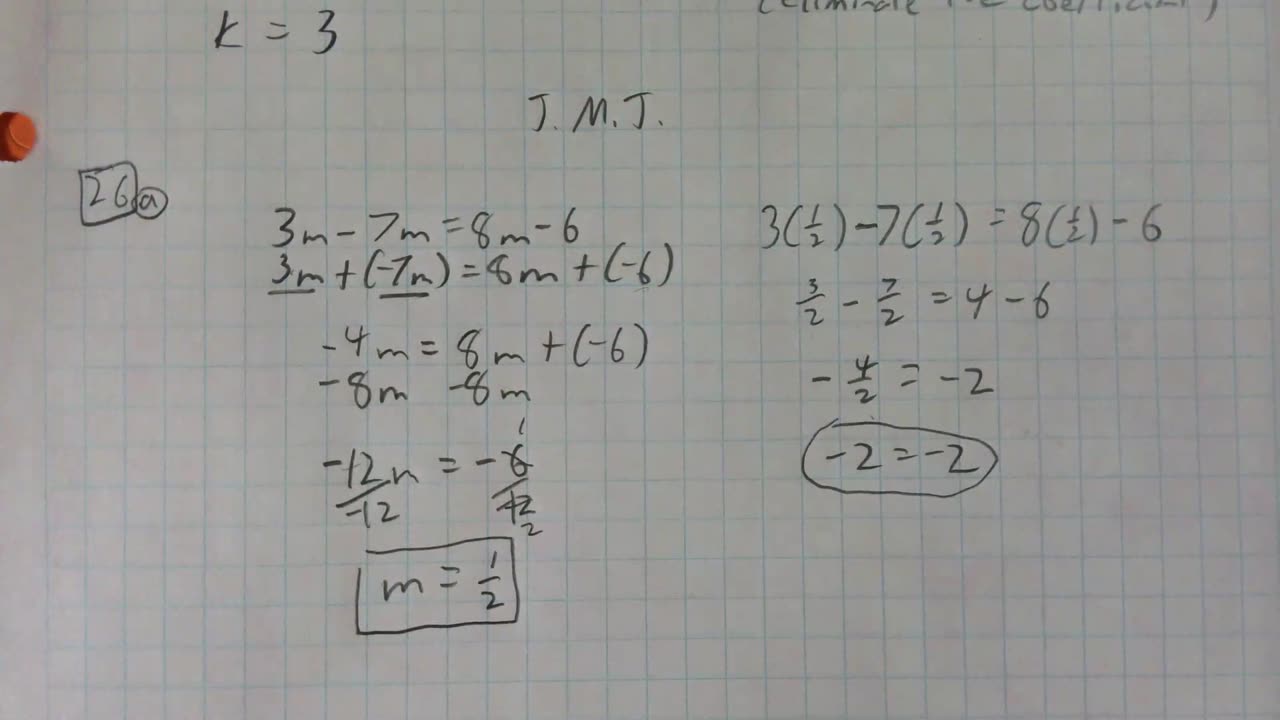 K = 3
J. M. J.
26 a
3m - 7m = 8m - 6
3m + (-7m) = 8m + (-6)
-4m = 8m + (-6)
-8m -8m
-12m = -6 1
-12 -12 2
m = 1/2
3(1/2) - 7(1/2) = 8(1/2) - 6
3/2 - 7/2 = 4 - 6
-4/2 = -2
-2 = -2